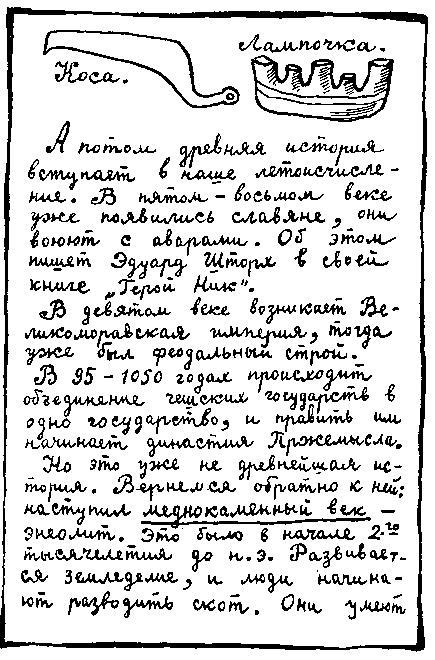 Коса.
Лампочка.
А потом древняя история
вступает в наше летоисчисле-
ние. В пятом – восьмом веке
уже появились славяне, они
воюют с аварами. Об этом
пишет Эдуард Шторх в своей
книге „Герой Ник".
В девятом веке возникает Ве-
ликоморавская империя, тогда
уже был феодальный строй.
В 95 – 1050 годах происходит
объединение чешских государств в
одно государство, и править им
начинает династия Пржемысла.
Но это уже не древнейшая ис-
тория. Вернемся обратно к ней:
наступил меднокаменный век –
энеолит. Это было в начале 2-го
тысячелетия до н.э. Развивает-
ся земледелие, и люди начина-
ют разводить скот. Они умеют